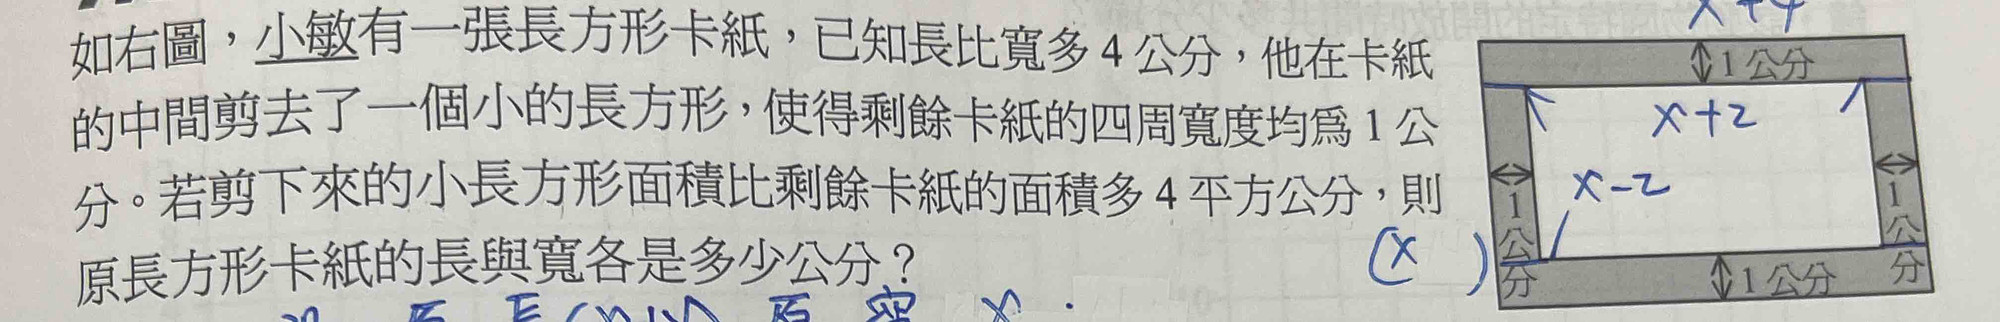 如右圖，小敏有一張長方形卡紙，已知長比寬多 4 公分，他在卡紙
的中間剪去了一個小的長方形，使得剩餘卡紙的四周寬度均為 1 公
分。若剪下來的小長方形面積比剩餘卡紙的面積多 4 平方公分，則
原長方形卡紙的長與寬各是多少公分？
x+4
1 公分
x+2
x-2
1公分
1公分
1 公分
(x )
原 長(x+4) 原 寬 x